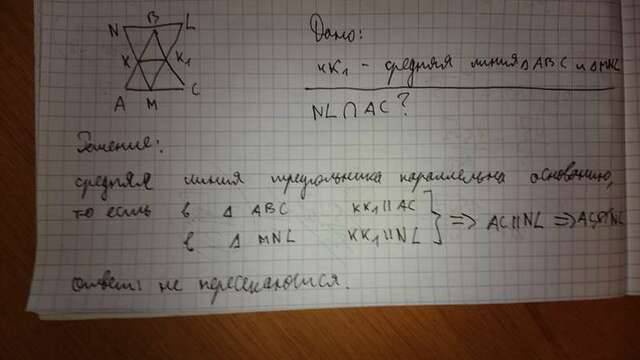 B
N L
K K₁
A M C
Дано:
KK₁ - средняя линия △ ABC и △ MNL
NL ∩ AC ?
Решение:
средняя линия треугольника параллельна основанию,
то есть в △ ABC KK₁ || AC
в △ MNL KK₁ || NL
} ⇒ AC || NL ⇒
ответ: не пересекаются.